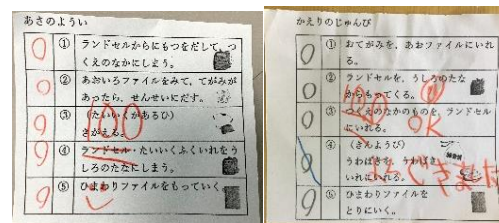 あさのようい
① ランドセルからにもつをだして、つ
くえのなかにしまう。
② あおいろファイルをみて、てがみが
あったら、せんせいにだす。
③ (たいいくがあるひ)
きがえる。
④ ランドセル・たいいくふくいれをう
しろのたなにしまう。
⑤ ひまわりファイルをもっていく。
100
かえりのじゅんび
① おてがみを、あおファイルにいれ
る。
② ランドセルを、うしろのたな
からもってくる。
③ つくえのなかのものを、ランドセル
にいれる。
④ (きんようび)
うわばきを、うわばき
いれにいれる。
⑤ ひまわりファイルを
とりにいく。
100
OK